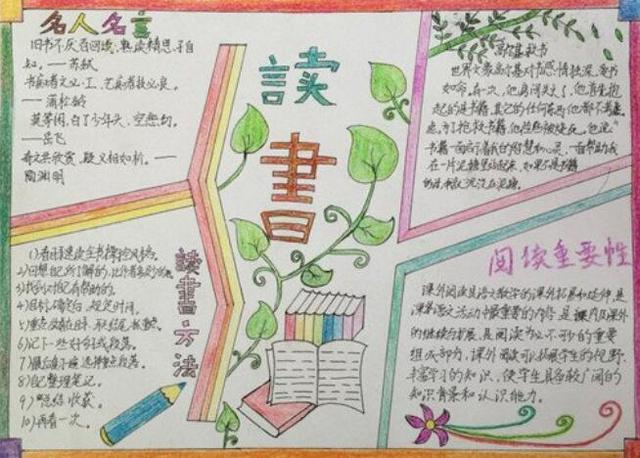 名人名言
旧书不厌百回读,熟读精思子自
知。——苏轼
书痴者文必工,艺痴者技必良。
——蒲松龄
莫等闲,白了少年头,空悲切。
——岳飞
奇文共欣赏,疑义相如析。——
陶渊明
读
書
高尔基救书
世界文豪高尔基对书感情独深,爱书
如命。有一次,他房间失火了,他首先抱
起的是书籍,其它的任何东西他都不考虑。
为了抢救书籍,他险些被烧死。他说:"
书籍一面启示着我的智慧和心灵,一面帮助我
在一片泥塘里站起来,如果不是书籍
的话,我就沉没在泥塘
阅读重要性
课外阅读是语文教学的课外拓展和延伸,是
课外语文活动中最重要的内容,是课内及课外
的继续与扩展,是阅读为必不可少的重要
组成部分,课外阅读可以拓展学生的视野,
丰富学习的知识,使学生具备较广阔的
知识背景和认识能力。
读書·方法
2)回想自己所了解的,
3)找到对自己有帮助的。
4)目标确定后,规定时间。
6)记下一些好句或段落。
7)最后通读一遍,选择重点段落。
8)自己整理笔记。
9)总结收获。
10)再看一次。